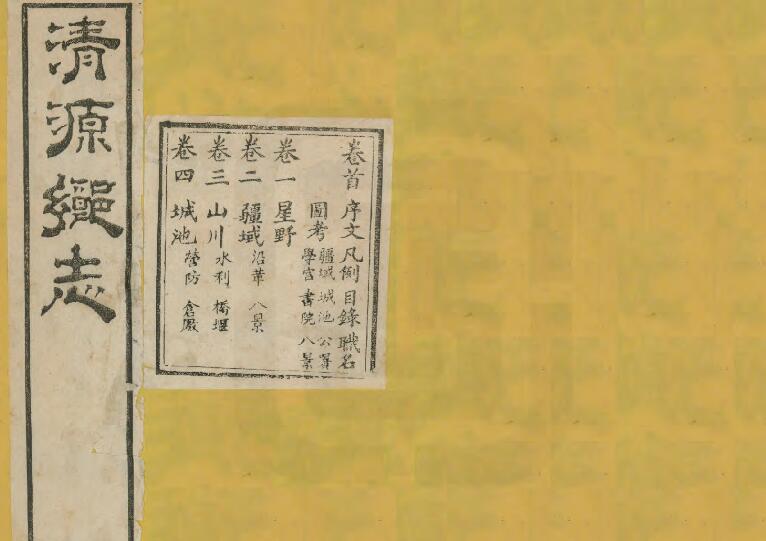 清源鄉志
卷首 序文 凡例 目錄 職名
圖考 疆域 城池 公署
學宮 書院 八景
卷一 星野
卷二 疆域 沿革 八景
卷三 山川 水利 橋堰
卷四 城池 營防 倉廒